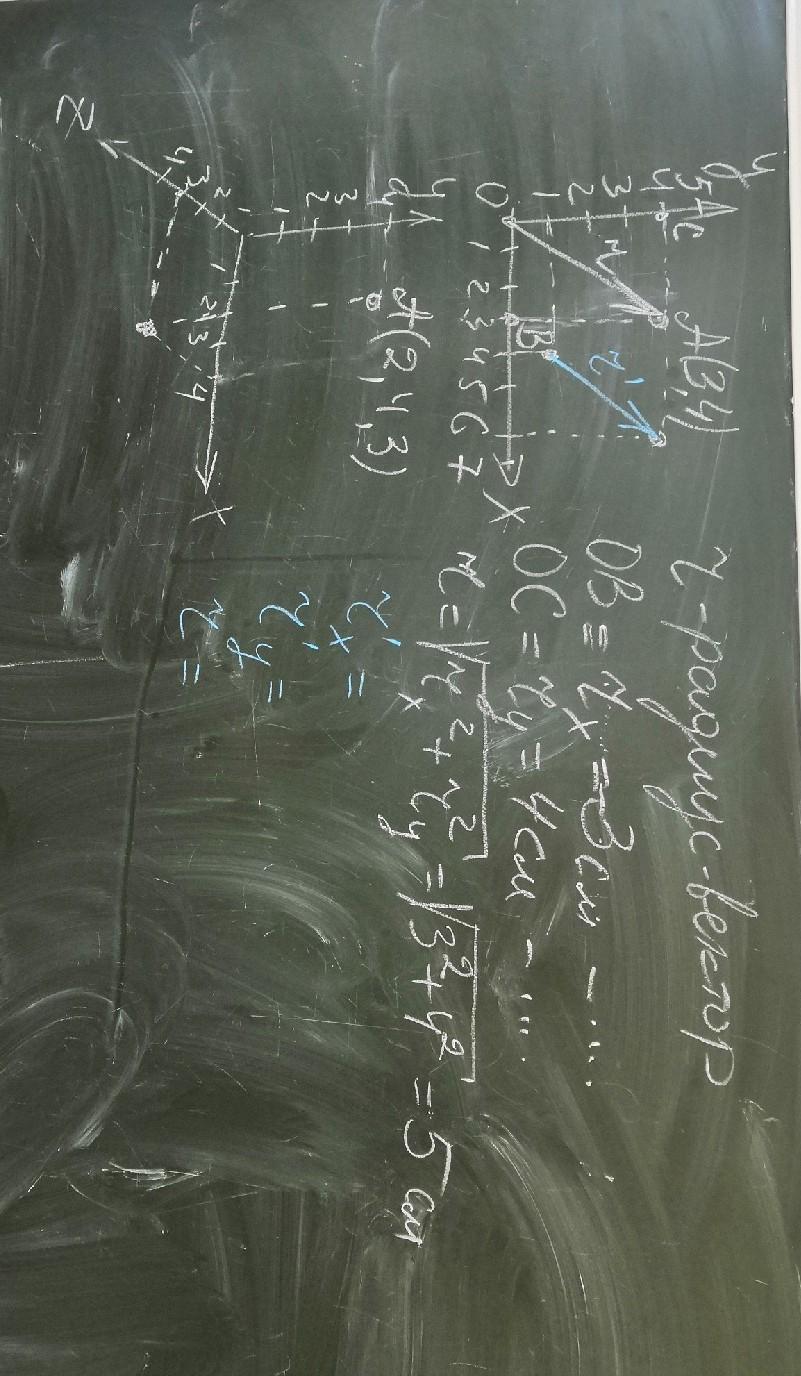 y
5
4
3
2
1
0
C
A(3,4)
r
r'
B
1 2 3 4 5 6 7
X
r - радиус-вектор
OB = r_x = 3 см - ....
OC = r_y = 4 см - ....
r = √(r_x² + r_y²) = √(3² + 4²) = 5 см
r'_x =
r'_y =
r' =
y
4
3
2
1
A(2,4,3)
1 2 3 4
X
1
2
3
4
Z